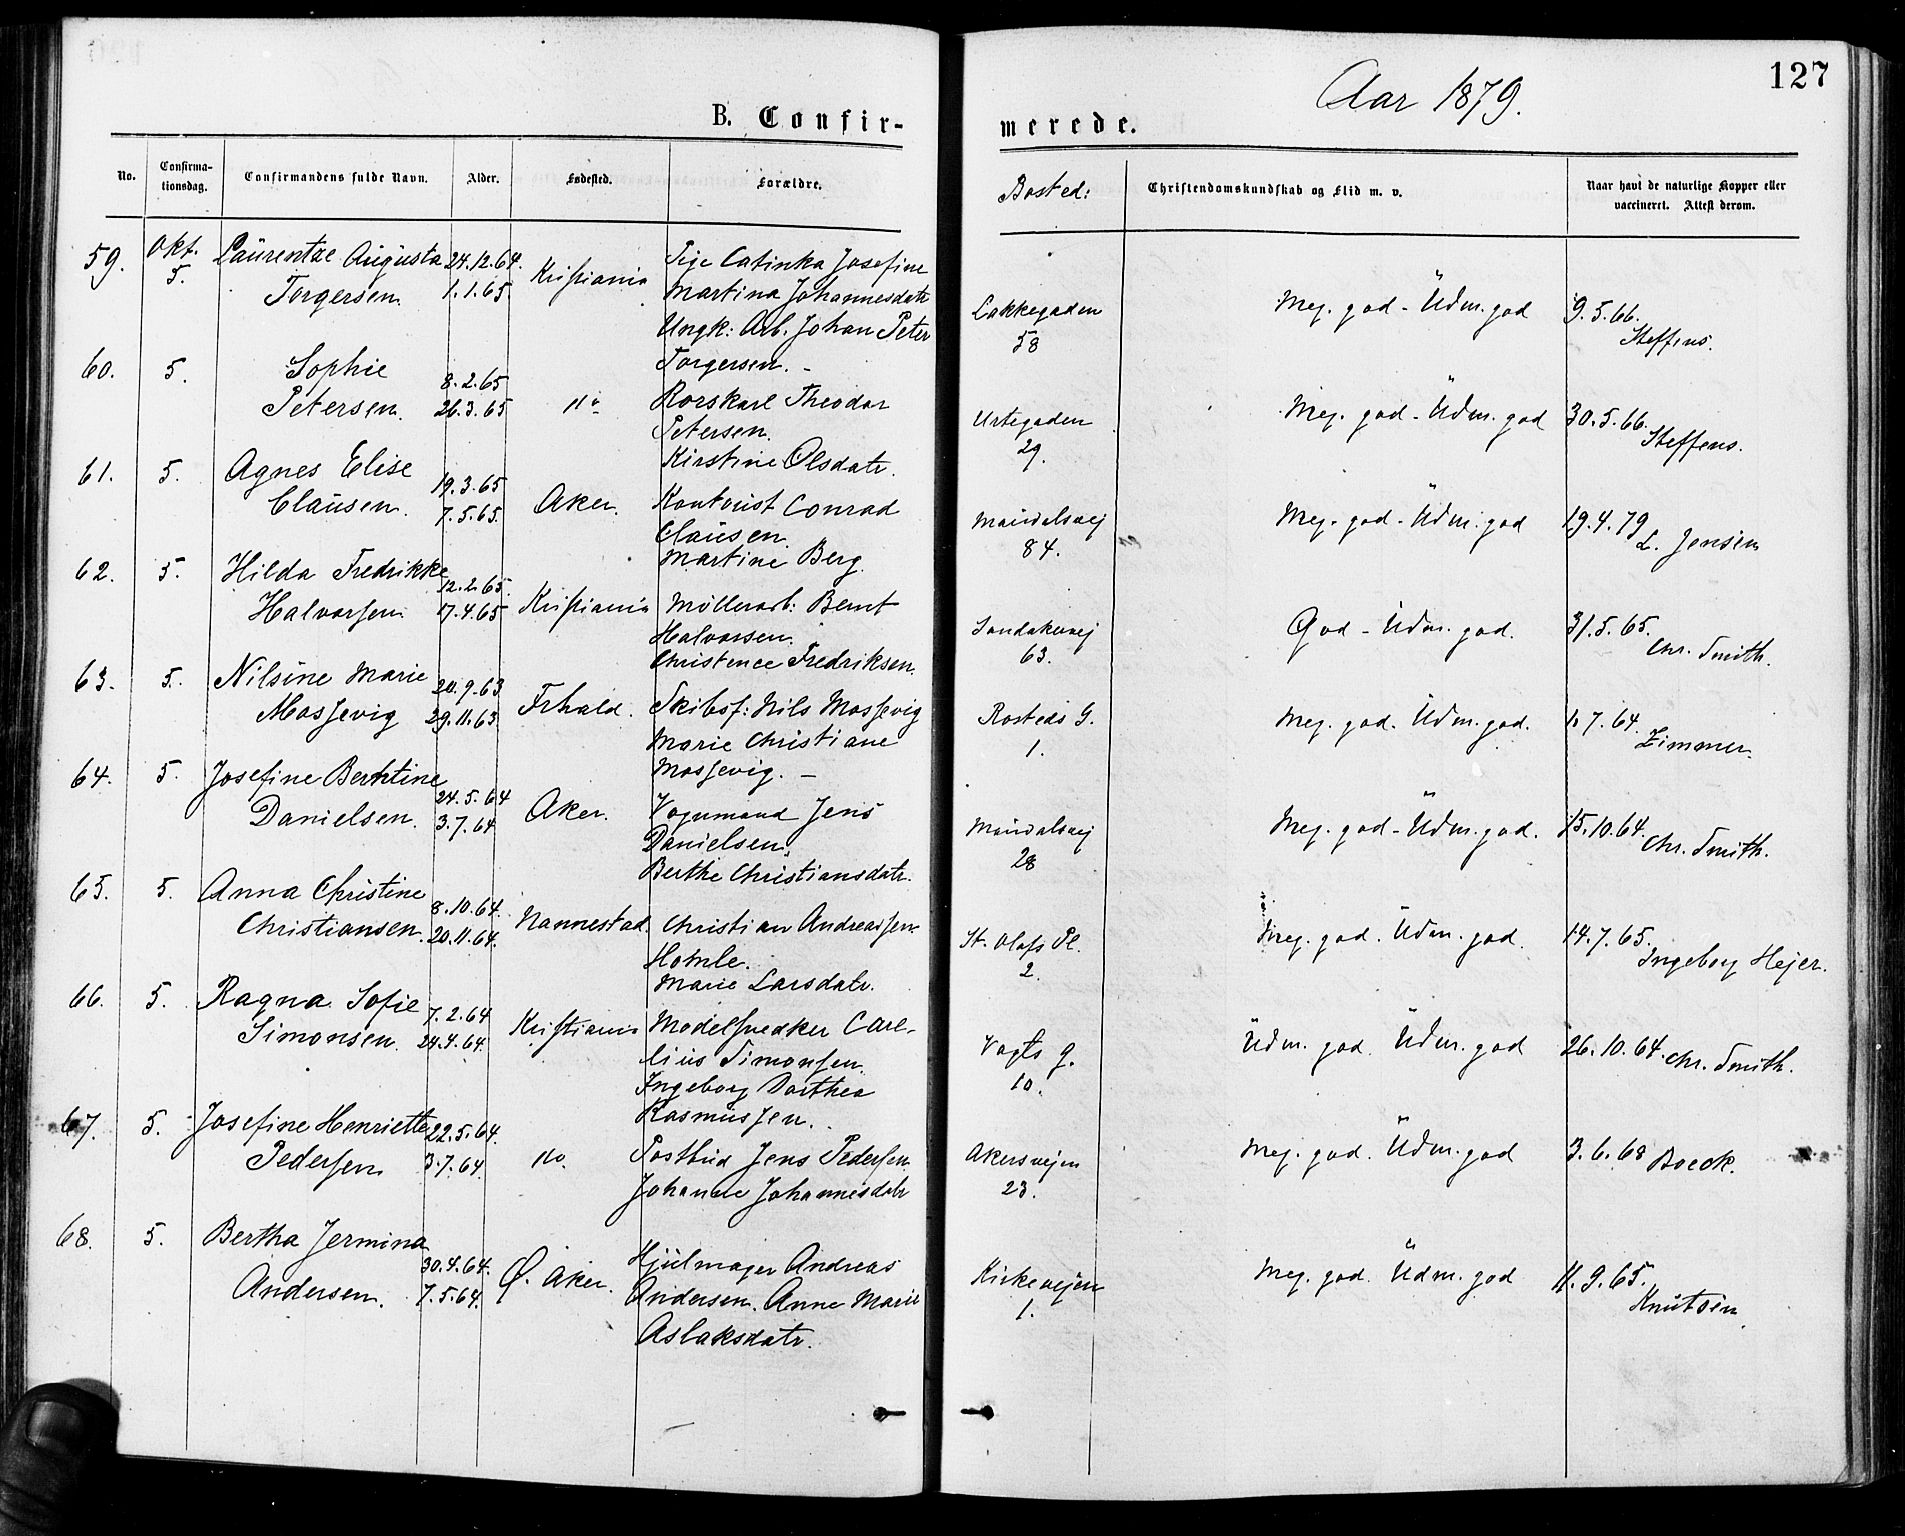 127
Aar 1879.
B. Confir-
merede.
No. Confirma-tionsdag. Confirmandens fulde Navn. Alder. Fødested. Forældre. Bosted: Christendomskundskab og Flid m. v. Naar havt de naturlige Kopper eller vaccineret. Attest derom.
59. Okt. 5. Laurentze Augusta Torgersen. 24.12.64. 1.1.65. Kristiania Pige Catinka Josefine Martina Johannesdatr Ungk: Arb. Johan Peter Torgersen. - Lakkegaden 58 Meg. god - Udm. god 9.5.66. Steffens.
60. 5. Sophie Petersen. 8.2.65 26.3.65 do Rorskarl Theodor Petersen. Kirstine Olsdatr. Urtegaden 29. Meg. god - Udm. god 30.5.66. Steffens.
61. 5. Agnes Elise Clausen. 19.3.65 7.5.65. Aker. Kontorist Conrad Clausen. Martine Berg. Maridalsvej 84. Meg. god - Udm. god 19.4.79 L. Jensen
62. 5. Hilda Fredrikke Halvorsen. 12.2.65. 17.4.65 Kristiania Möllerarb: Bernt Halvorsen. Christence Fredriksen. Sandakervej 63. God - Udm. god. 31.5.65. Chr. Smith.
63. 5. Nilsine Marie Mossevig 20.9.63 29.11.63. Frhald. Skibsf: Nils Mossevig Marie Christiane Mossevig. - Rosteds G. 1. Meg. god. Udm. god. 1.7.64. Zimmer.
64. 5. Josefine Berntine Danielsen. 24.5.64 3.7.64 Aker. Vognmand Jens Danielsen. Berthe Christiansdatr. Maridalsvej 28 Meg. god - Udm. god. 15.10.64. Chr. Smith.
65. 5. Anna Christine Christiansen. 8.10.64. 20.11.64. Nannestad. Christian Andreassen Homle. Marie Larsdatr. St. Olafs Pl. 2. Meg. god. Udm. god. 14.7.65. Ingeborg Hejer.
66. 5. Ragna Sofie Simonsen. 7.2.64 24.4.64. Kristiania Modelsnedker Carelius Simonsen. Ingeborg Dorthea Rasmussen. Vogts g. 10. Udm. god. Udm. god 26.10.64. Chr. Smith.
67. 5. Josefine Henriette Pedersen 22.5.64. 3.7.64. do. Postbud Jens Pedersen Johanne Johannesdatr Akersvejen 23. Meg. god. Udm. god 3.6.68 Boeck.
68. 5. Bertha Jermina Andersen. 30.4.64. 7.5.64. Ø. Aker. Hjulmager Andreas Andersen. Anne Marie Aslaksdatr. Kirkevejen 1. Meg. god. Udm. god 11.9.65. Knutsen.